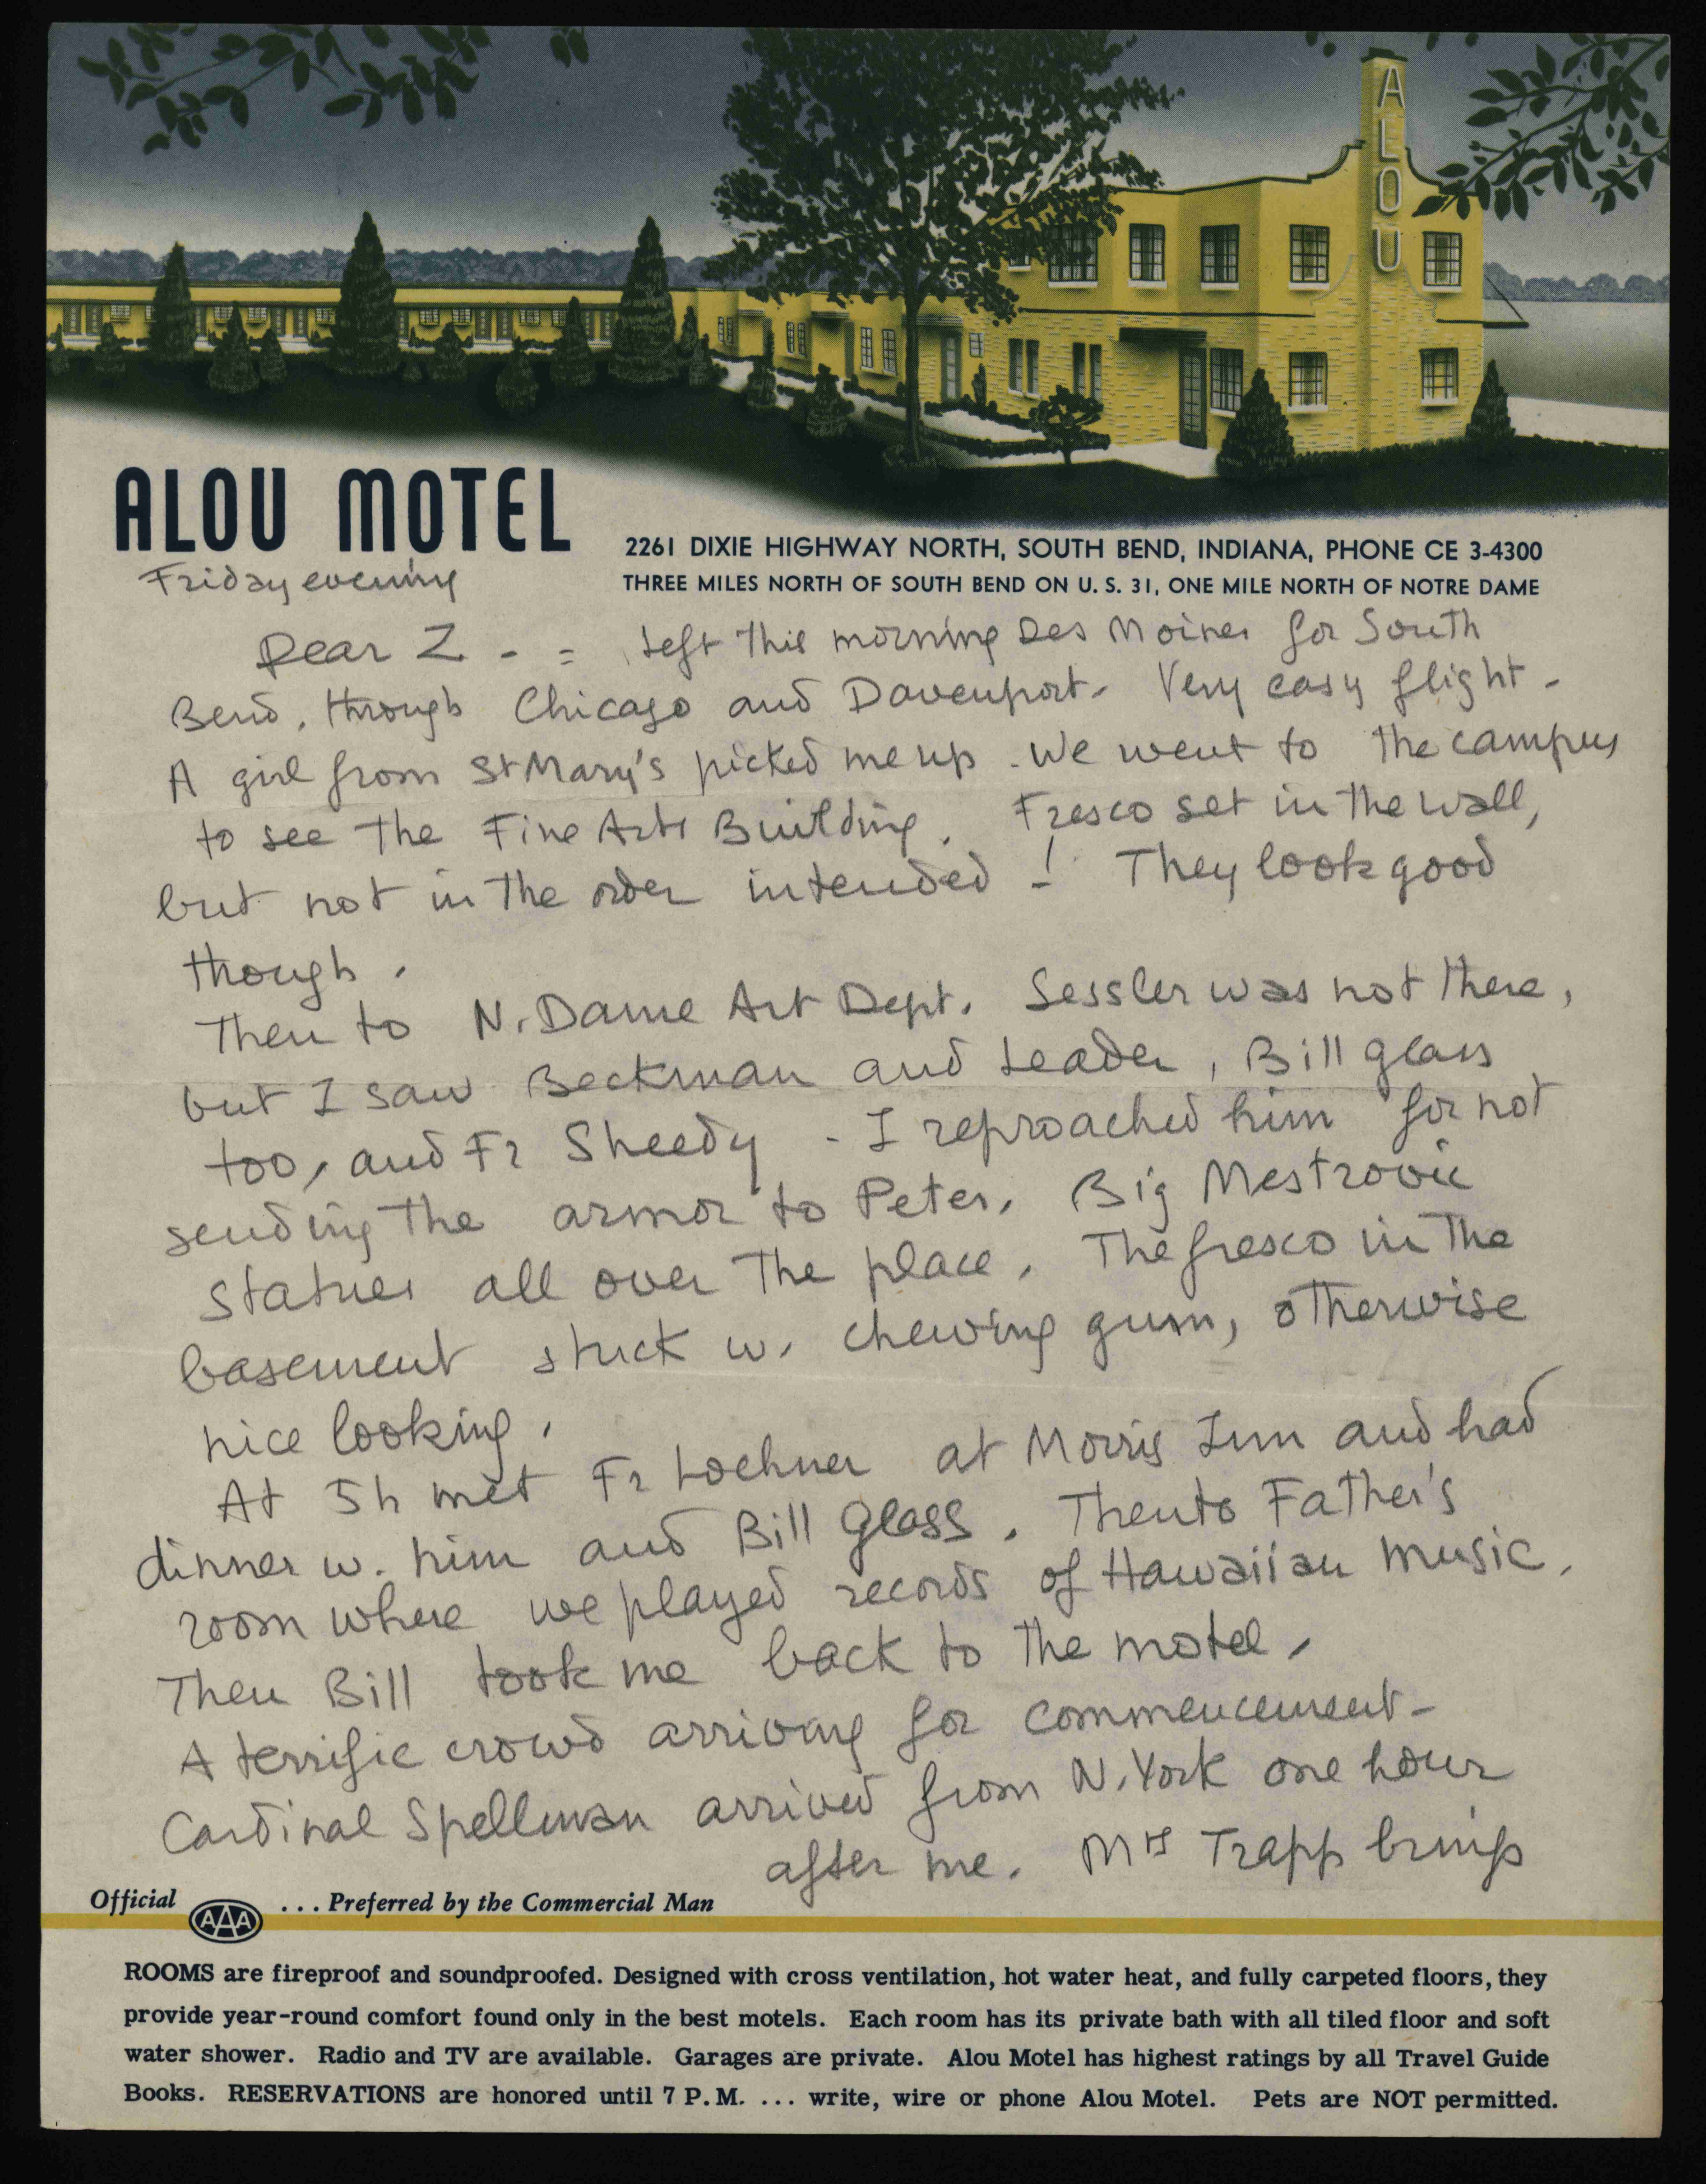 ALOU
ALOU MOTEL
2261 DIXIE HIGHWAY NORTH, SOUTH BEND, INDIANA, PHONE CE 3-4300
THREE MILES NORTH OF SOUTH BEND ON U. S. 31, ONE MILE NORTH OF NOTRE DAME
Friday evening
Dear Z - = Left this morning Des Moines for South
Bend, through Chicago and Davenport. Very easy flight -
A girl from St Mary's picked me up. We went to the campus
to see the Fine Arts Building. Fresco set in the wall,
but not in the order intended -! They look good
though.
Then to N. Dame Art Dept. Sessler was not there,
but I saw Beckman and Leader, Bill glass
too, and Fr Sheedy - I reproached him for not
sending the armor to Peter. Big Mestrovic
statues all over the place. The fresco in the
basement stuck w. chewing gum, otherwise
nice looking.
At 5h met Fr Lochner at Morris Inn and had
dinner w. him and Bill Glass. Then to Father's
room where we played records of Hawaiian music.
Then Bill took me back to the motel.
A terrific crowd arriving for commencement -
Cardinal Spellman arrived from N. York one hour
after me. Mrs Trapp brings
Official AAA ... Preferred by the Commercial Man
ROOMS are fireproof and soundproofed. Designed with cross ventilation, hot water heat, and fully carpeted floors, they
provide year-round comfort found only in the best motels. Each room has its private bath with all tiled floor and soft
water shower. Radio and TV are available. Garages are private. Alou Motel has highest ratings by all Travel Guide
Books. RESERVATIONS are honored until 7 P. M. ... write, wire or phone Alou Motel. Pets are NOT permitted.